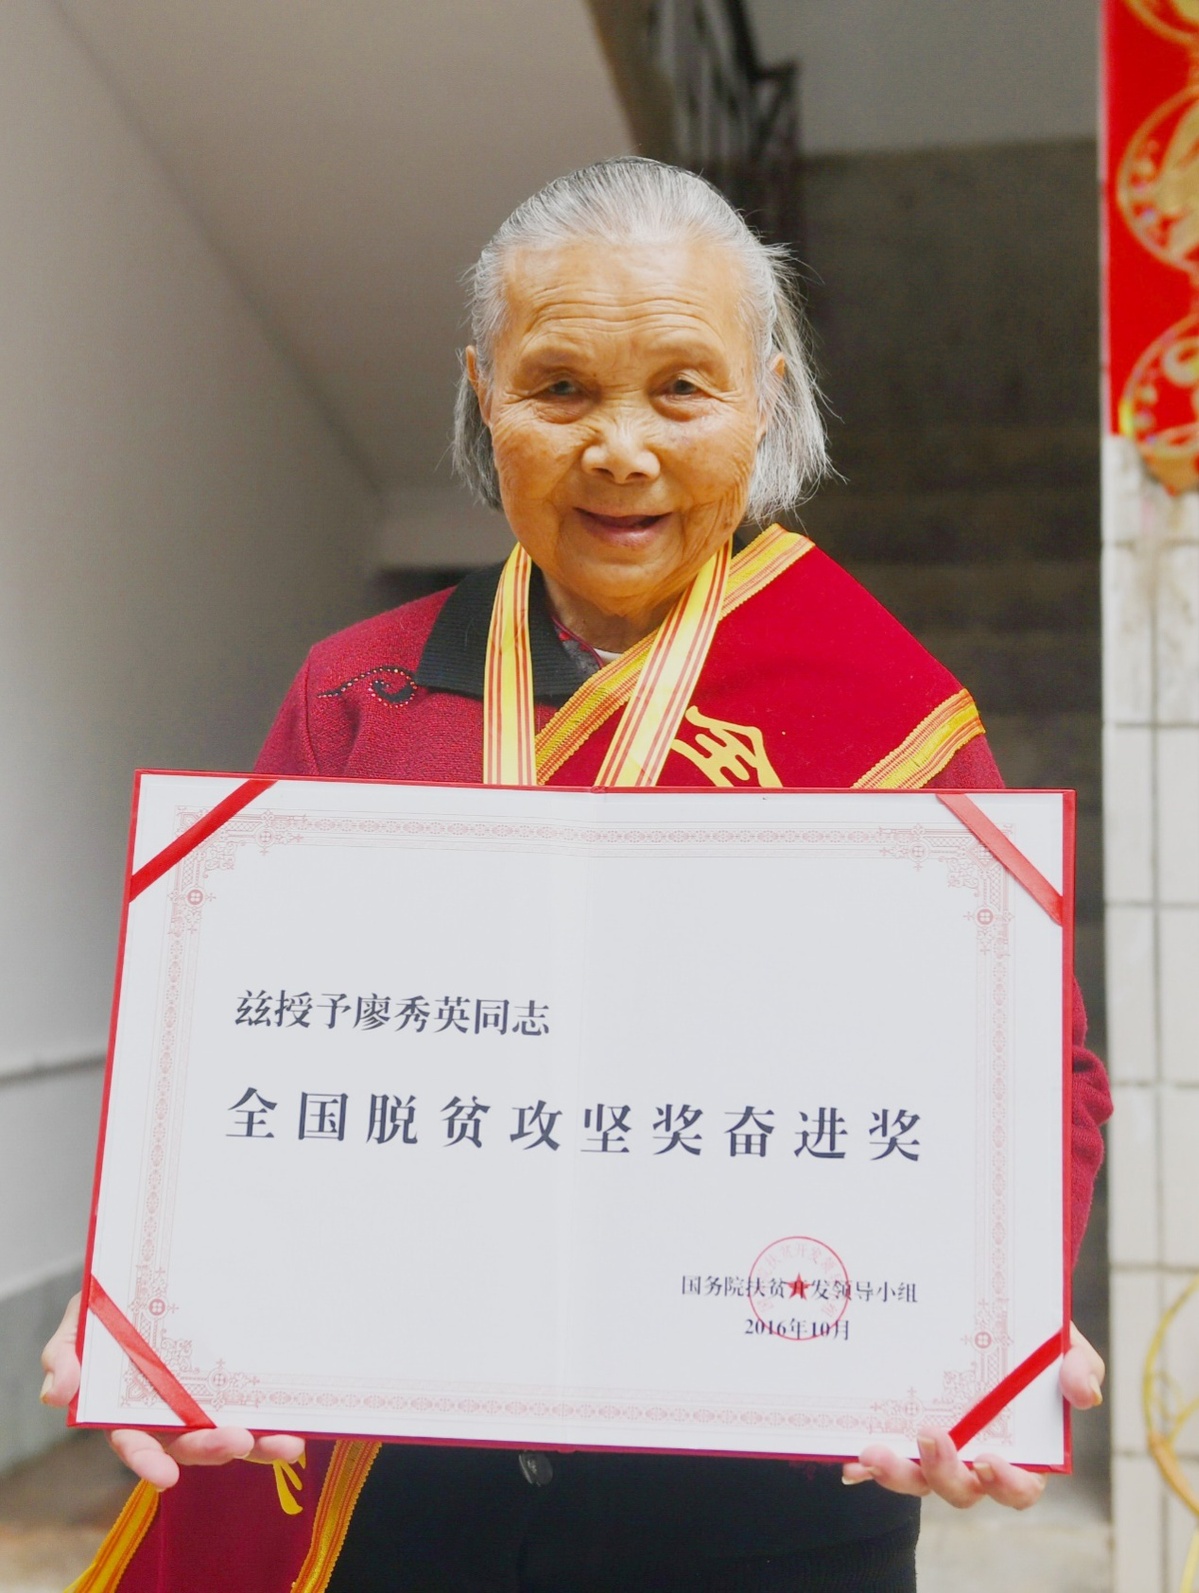 全
兹授予廖秀英同志
全国脱贫攻坚奖奋进奖
国务院扶贫开发领导小组
2016年10月